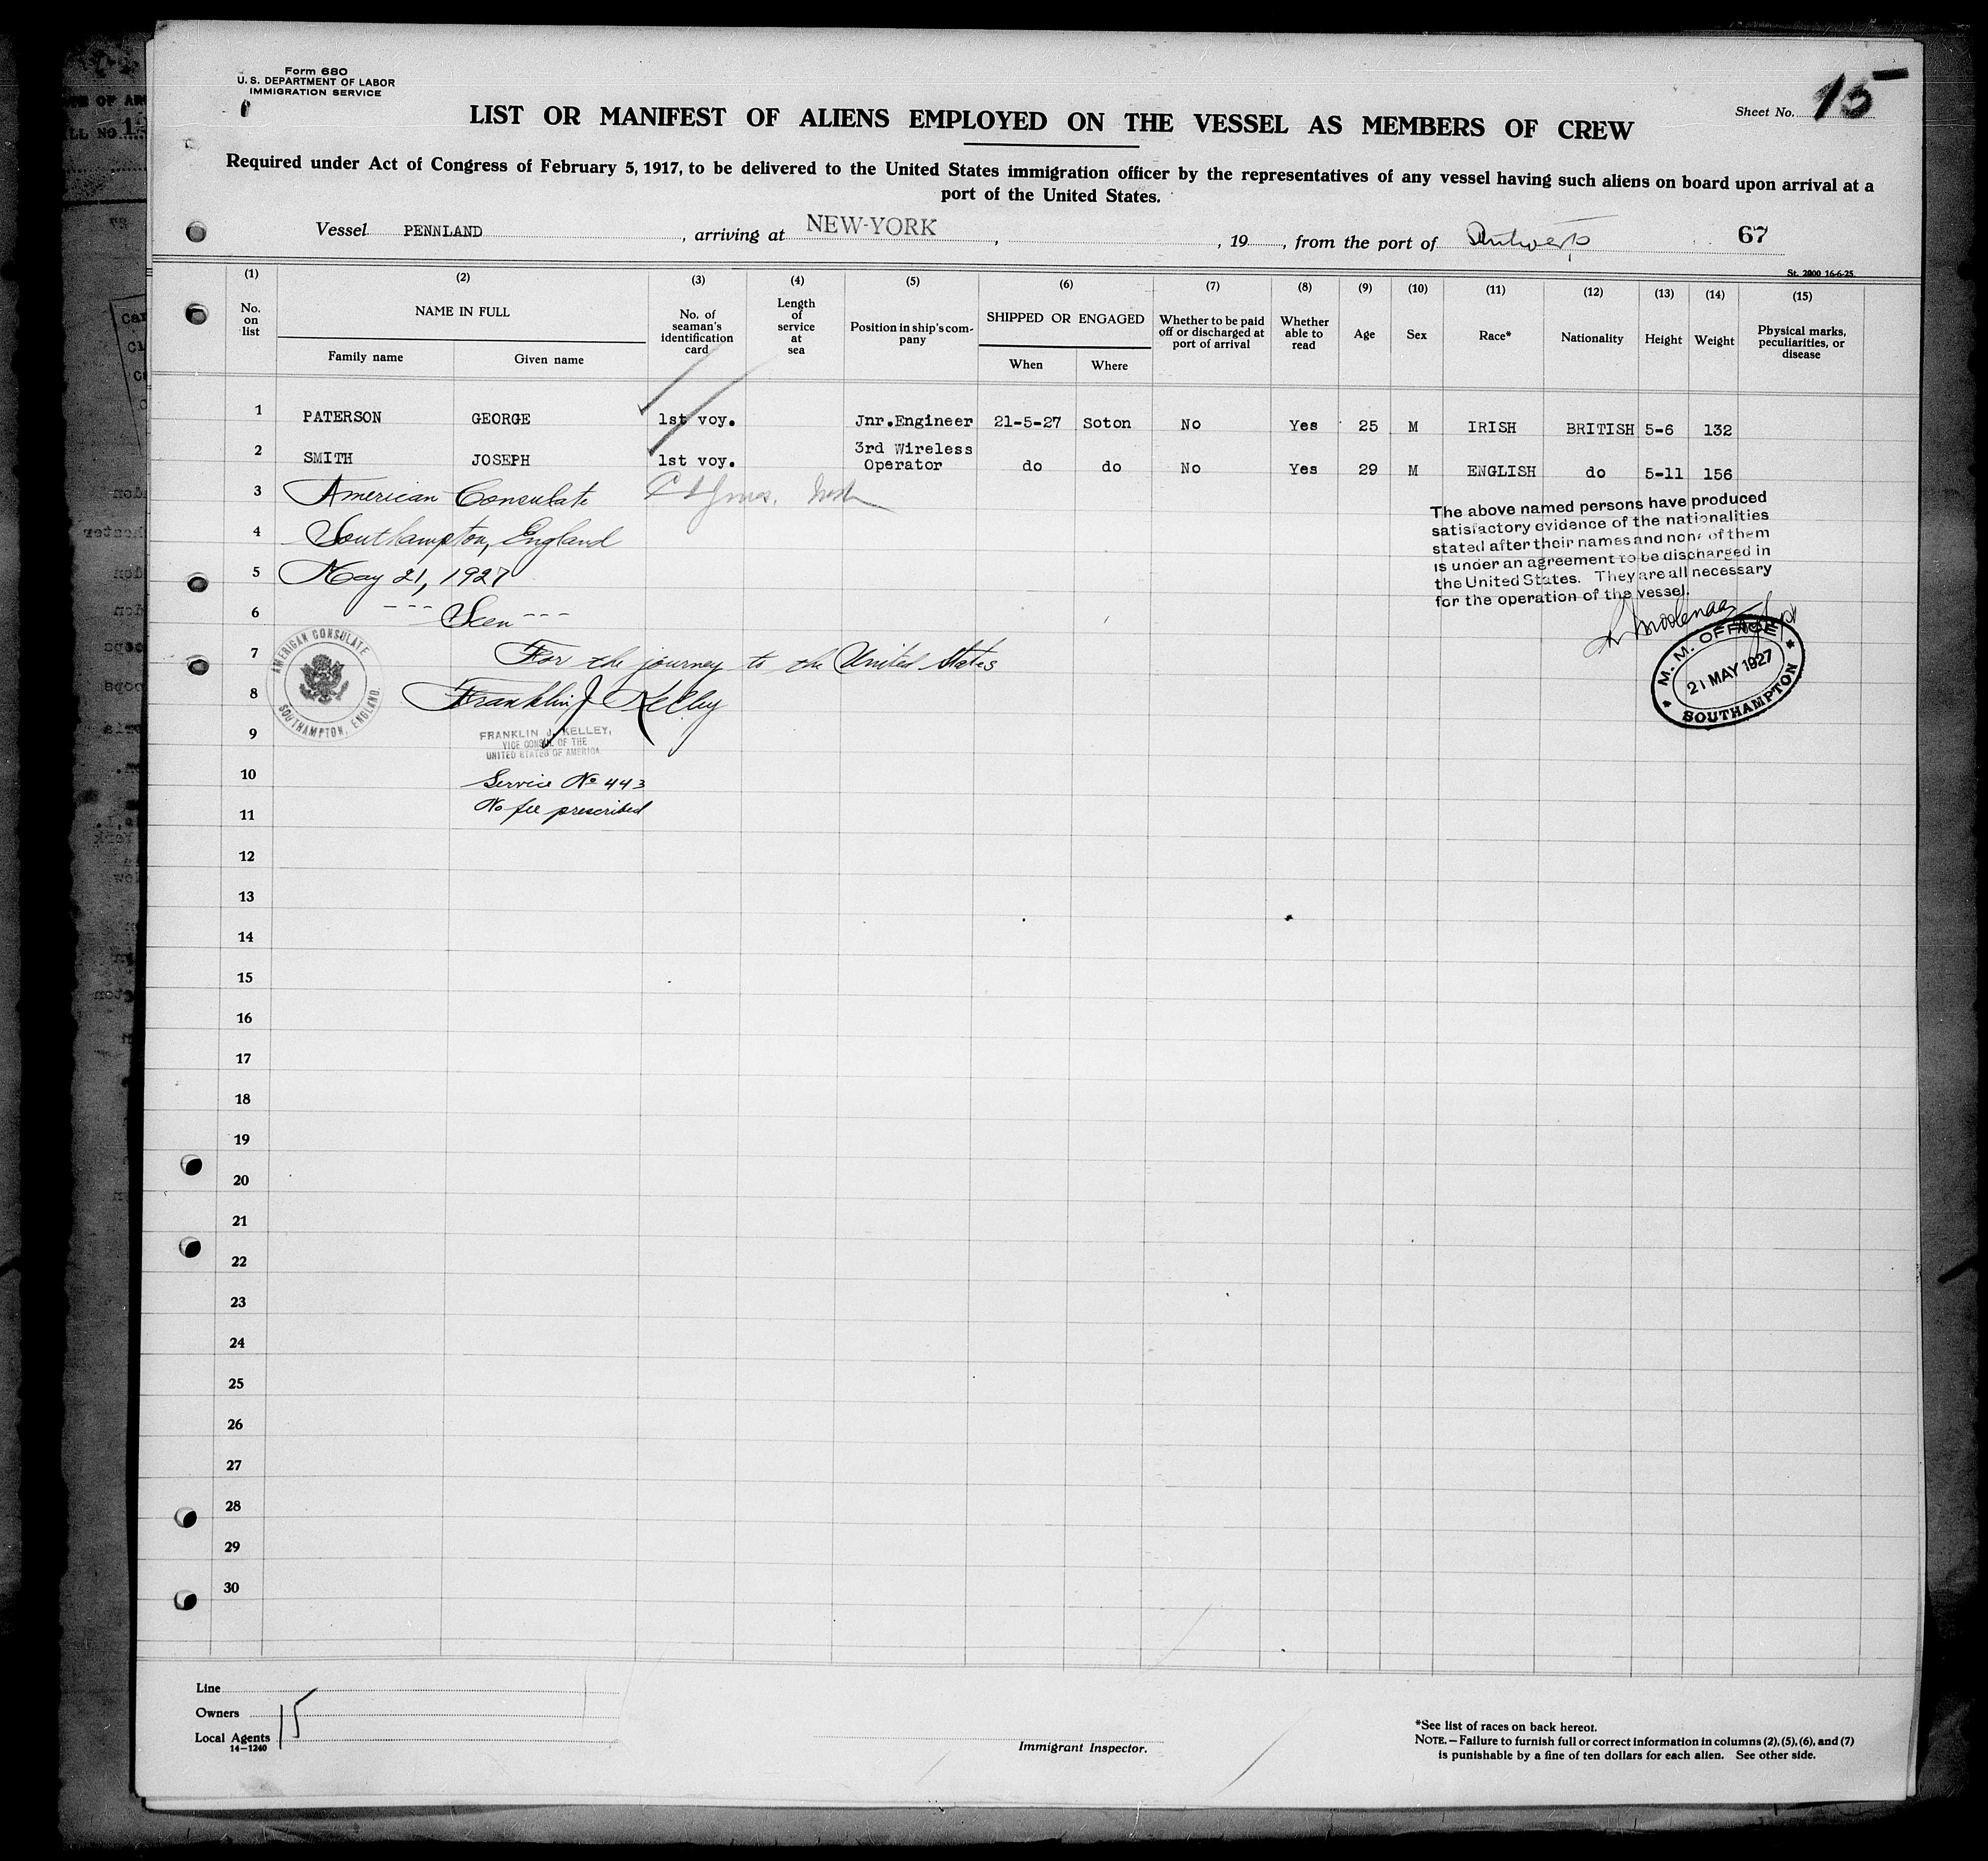 Form 680
U. S. DEPARTMENT OF LABOR
IMMIGRATION SERVICE
Sheet No. 15
LIST OR MANIFEST OF ALIENS EMPLOYED ON THE VESSEL AS MEMBERS OF CREW
Required under Act of Congress of February 5, 1917, to be delivered to the United States immigration officer by the representatives of any vessel having such aliens on board upon arrival at a
port of the United States.
Vessel PENNLAND, arriving at NEW-YORK, , 19 , from the port of Antwerp 67
St. 2000 16-6-25.
(1) (2) (3) (4) (5) (6) (7) (8) (9) (10) (11) (12) (13) (14) (15)
No. on list NAME IN FULL Family name Given name No. of seaman's identification card Length of service at sea Position in ship's company SHIPPED OR ENGAGED When Where Whether to be paid off or discharged at port of arrival Whether able to read Age Sex Race* Nationality Height Weight Physical marks, peculiarities, or disease
1 PATERSON GEORGE 1st voy. Jnr.Engineer 21-5-27 Soton No Yes 25 M IRISH BRITISH 5-6 132
2 SMITH JOSEPH 1st voy. 3rd Wireless Operator do do No Yes 29 M ENGLISH do 5-11 156
3 American Consulate
4 Southampton, England
5 May 21, 1927
6 --- Seen ---
7 For the journey to the United States
8 Franklin J Kelley
9 FRANKLIN J. KELLEY,
VICE CONSUL OF THE
UNITED STATES OF AMERICA
10 Service No 443
11 No fee prescribed
AMERICAN CONSULATE
SOUTHAMPTON, ENGLAND.
The above named persons have produced
satisfactory evidence of the nationalities
stated after their names and none of them
is under an agreement to be discharged in
the United States. They are all necessary
for the operation of the vessel.
M. M. OFFICE
21 MAY 1927
SOUTHAMPTON
12
13
14
15
16
17
18
19
20
21
22
23
24
25
26
27
28
29
30
Line
Owners
Local Agents 15
14—1240
Immigrant Inspector.
*See list of races on back hereof.
NOTE.—Failure to furnish full or correct information in columns (2), (5), (6), and (7)
is punishable by a fine of ten dollars for each alien. See other side.